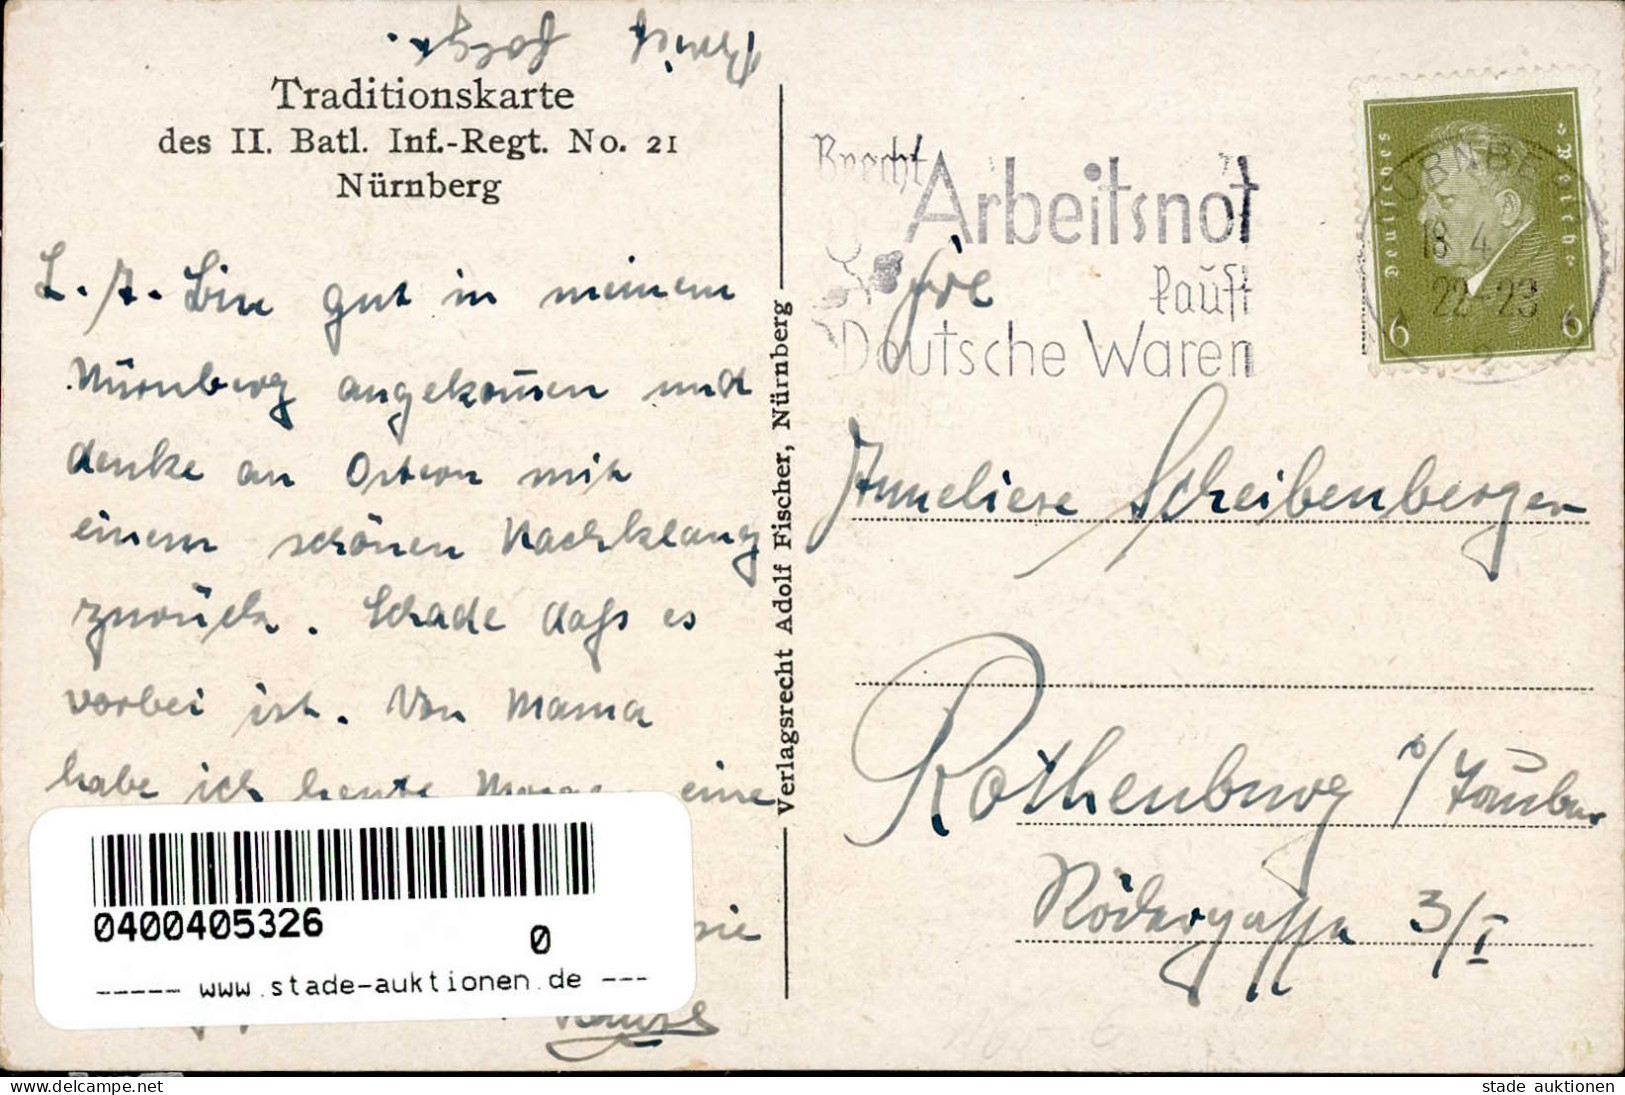 Brief folgt.
Traditionskarte
des II. Batl. Inf.-Regt. No. 21
Nürnberg
L. A. Bin gut in meinem
Nürnberg angekom̄en und
denke an Ostern mit
einem schönen Nachklang
zurück. Schade daß es
vorbei ist. Von Mama
habe ich heute Morgen eine
sie
Verlagsrecht Adolf Fischer, Nürnberg
Brecht
Arbeitsnot
kauft
Deutsche Waren
Deutsches Reich
NÜRNBE
18 4
22-23
2
6 6
Frl
Anneliese Scheibenberger
Rothenburg o/Tauber
Rödergasse 3/I
0400405326
0
----- www.stade-auktionen.de ---
www.delcampe.net
stade auktionen